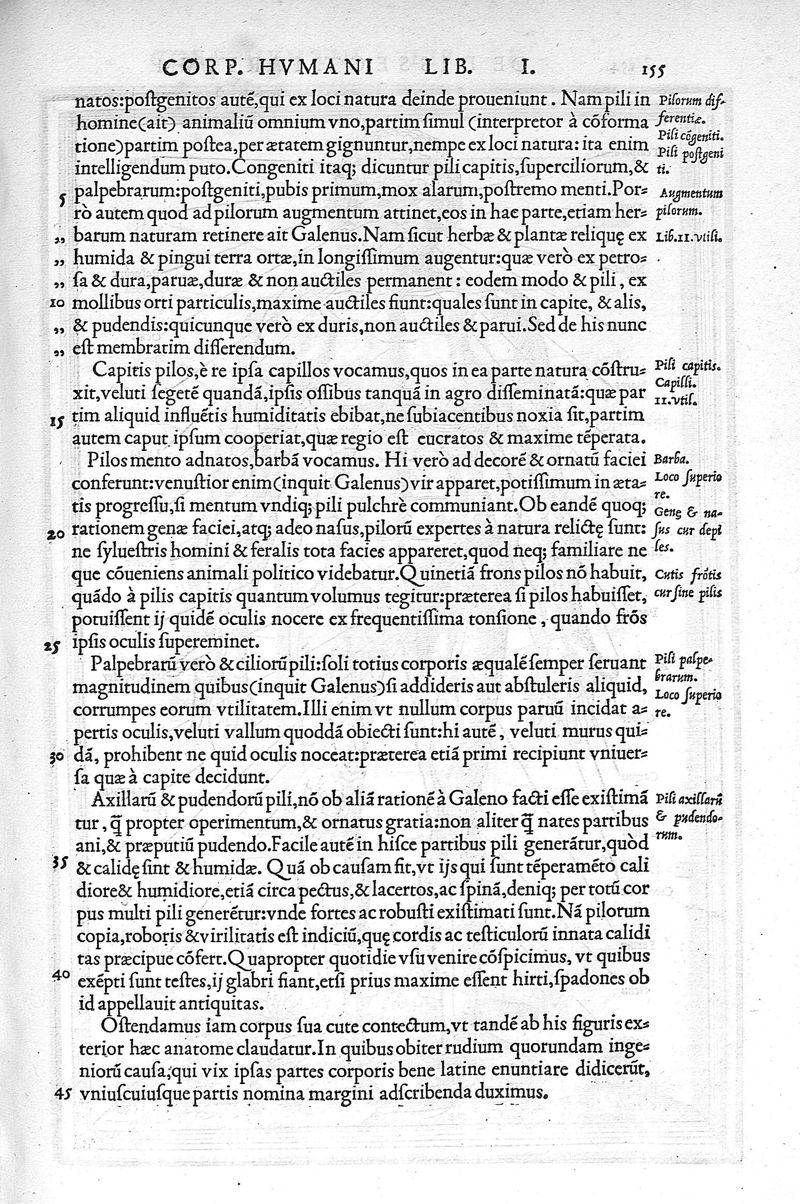 CORP. HVMANI LIB. I. 155
natos:poſtgenitos autē,qui ex loci natura deinde proueniunt. Nam pili in
homine(ait) animaliū omnium vno,partim ſimul (interpretor à cōforma
tione)partim poſtea,per ætatem gignuntur,nempe ex loci natura: ita enim
intelligendum puto. Congeniti itaq; dicuntur pili capitis,ſuperciliorum,&
5 palpebrarum:poſtgeniti,pubis primum,mox alarum,poſtremo menti.Por=
rò autem quod ad pilorum augmentum attinet,eos in hac parte,etiam her=
„ barum naturam retinere ait Galenus.Nam ſicut herbæ & plantæ reliquę ex
„ humida & pingui terra ortæ,in longiſſimum augentur:quæ verò ex petro=
„ ſa & dura,paruæ,duræ & non auctiles permanent: eodem modo & pili, ex
10 mollibus orti particulis,maxime auctiles fiunt:quales ſunt in capite, & alis,
„ & pudendis:quicunque verò ex duris,non auctiles & parui.Sed de his nunc
„ eſt membratim diſſerendum.
Capitis pilos,è re ipſa capillos vocamus,quos in ea parte natura cōſtru=
xit,veluti ſegetē quandā,ipſis oſſibus tanquā in agro diſſeminatā:quæ par
15 tim aliquid influētis humiditatis ebibat,ne ſubiacentibus noxia ſit,partim
autem caput ipſum cooperiat,quæ regio eſt eucratos & maxime tēperata.
Pilos mento adnatos,barbā vocamus. Hi verò ad decorē & ornatū faciei
conferunt:venuſtior enim(inquit Galenus)vir apparet,potiſſimum in æta=
tis progreſſu,ſi mentum vndiq; pili pulchrè communiant.Ob eandē quoq;
20 rationem genæ faciei,atq; adeo naſus,pilorū expertes à natura relictę ſunt:
ne ſylueſtris homini & feralis tota facies appareret,quod neq; familiare ne
que cōueniens animali politico videbatur.Quinetiā frons pilos nō habuit,
quādo à pilis capitis quantum volumus tegitur:præterea ſi pilos habuiſſet,
potuiſſent ij quidē oculis nocere ex frequentiſſima tonſione, quando frōs
25 ipſis oculis ſupereminet.
Palpebrarū verò & ciliorū pili:ſoli totius corporis æqualē ſemper ſeruant
magnitudinem quibus(inquit Galenus)ſi addideris aut abſtuleris aliquid,
corrumpes eorum vtilitatem.Illi enim vt nullum corpus paruū incidat a=
pertis oculis,veluti vallum quoddā obiecti ſunt:hi autē, veluti murus qui=
30 dā, prohibent ne quid oculis noceat:præterea etiā primi recipiunt vniuer=
ſa quæ à capite decidunt.
Axillarū & pudendorū pili,nō ob aliā rationē à Galeno facti eſſe exiſtimā
tur, q̄̄ propter operimentum,& ornatus gratia:non aliter q̄̄ nates partibus
ani,& præputiū pudendo.Facile autē in hiſce partibus pili generātur,quòd
35 & calidę ſint & humidæ. Quā ob cauſam fit,vt ijs qui ſunt tēperamēto cali
diore& humidiore,etiā circa pectus,& lacertos,ac ſpinā,deniq; per totū cor
pus multi pili generētur:vnde fortes ac robuſti exiſtimati ſunt.Nā pilorum
copia,roboris & virilitatis eſt indiciū,quę cordis ac teſticulorū innata calidi
tas præcipue cōfert.Quapropter quotidie vſu venire cōſpicimus, vt quibus
40 exēpti ſunt teſtes,ij glabri fiant,etſi prius maxime eſſent hirti,ſpadones ob
id appellauit antiquitas.
Oſtendamus iam corpus ſua cute contectum,vt tandē ab his figuris ex=
terior hæc anatome claudatur.In quibus obiter rudium quorundam inge=
niorū cauſa,qui vix ipſas partes corporis bene latine enuntiare didicerūt,
45 vniuſcuiuſque partis nomina margini adſcribenda duximus.
Pilorum dif=
ferentiæ.
Pili cōgeniti.
Pili poſtgeni
ti.
Augmentum
pilorum.
Lib.11.vtiſi.
Pili capitis.
Capilli.
11.vtiſ.
Barba.
Loco ſuperio
re.
Genę & na=
ſus cur depi
les.
Cutis frōtis
cur ſine pilis
Pili palpe=
brarum.
Loco ſuperio
re.
Pili axillarū
& pudendo=
rum.